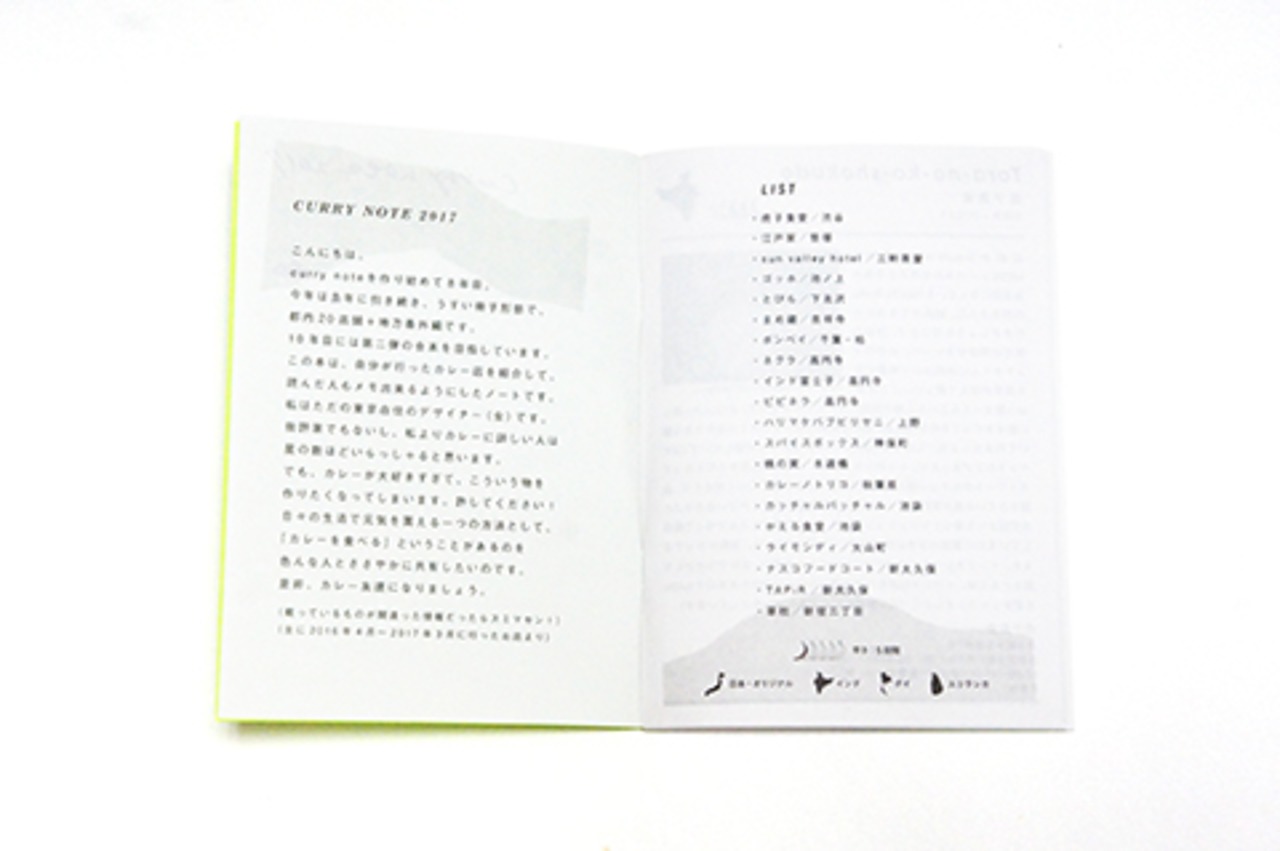 CURRY NOTE 2017
こんにちは、
curry noteを作り始めて8年目。
今年は去年に引き続き、うすい冊子形態で、
都内20店舗＋地方番外編です。
10年目には第二弾の合本を目指しています。
この本は、自分が行ったカレー店を紹介して、
読んだ人もメモ出来るようにしたノートです。
私はただの東京在住のデザイナー（女）です。
批評家でもないし、私よりカレーに詳しい人は
星の数ほどいらっしゃると思います。
でも、カレーが大好きすぎて、こういう物を
作りたくなってしまいます。許してください！
日々の生活で元気を貰える一つの方法として、
「カレーを食べる」ということがあるのを
色んな人とささやかに共有したいのです。
是非、カレー友達になりましょう。
（載っているものが間違った情報だったらスミマセン！）
（主に2016年4月〜2017年3月に行ったお店より）
LIST
・虎子食堂／渋谷
・江戸家／笹塚
・sun valley hotel／三軒茶屋
・ゴッホ／池ノ上
・とびら／下北沢
・まめ蔵／吉祥寺
・ボンベイ／千葉・柏
・ネグラ／高円寺
・インド富士子／高円寺
・ピピネラ／高円寺
・ハリマケバブビリヤニ／上野
・スパイスボックス／神保町
・桃の実／水道橋
・カレーノトリコ／秋葉原
・カッチャルバッチャル／池袋
・かえる食堂／池袋
・ライモンディ／大山町
・ナスコフードコート／新大久保
・TAPiR／新大久保
・草枕／新宿三丁目
辛さ：5段階
日本・オリジナル
インド
タイ
スリランカ
Tora-no-ko-shokudo